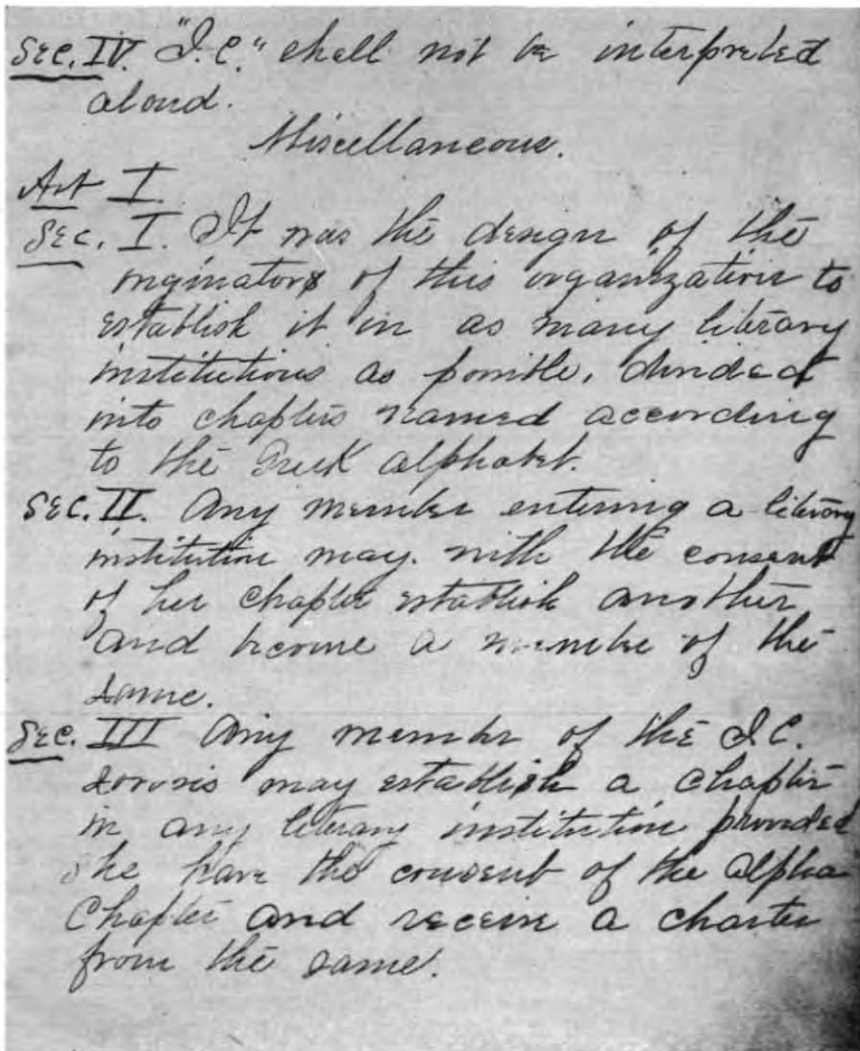 Sec. IV. "I.C." shall not be interpreted
aloud.
Miscellaneous.
Art I
Sec. I. It was the design of the
originators of this organization to
establish it in as many literary
institutions as possible, divided
into chapters named according
to the Greek alphabet.
Sec. II. Any member entering a literary
institution may with the consent
of her chapter establish another
and become a member of the
same.
Sec. III Any member of the I.C.
sorosis may establish a chapter
in any literary institution provided
she have the consent of the Alpha
Chapter and receive a charter
from the same.